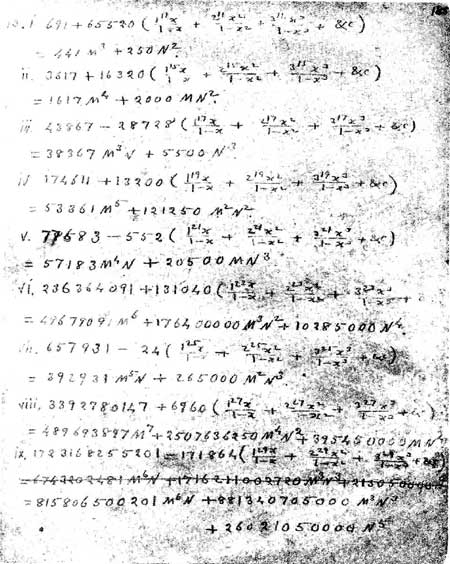 i 691 + 65520 ( 1¹¹x/1-x + 2¹¹x²/1-x² + 3¹¹x³/1-x³ + &c)
= 441 M³ + 250 N².
ii. 3617 + 16320 ( 1¹⁵x/1-x + 2¹⁵x²/1-x² + 3¹⁵x³/1-x³ + &c)
= 1617 M⁴ + 2000 MN².
iii 43867 - 28728 ( 1¹⁷x/1-x + 2¹⁷x²/1-x² + 3¹⁷x³/1-x³ + &c)
= 38367 M³N + 5500 N³
iv 174611 + 13200 ( 1¹⁹x/1-x + 2¹⁹x²/1-x² + 3¹⁹x³/1-x³ + &c)
= 53361 M⁵ + 121250 M²N².
v. 77683 - 552 ( 1²¹x/1-x + 2²¹x²/1-x² + 3²¹x³/1-x³ + &c)
= 57183 M⁴N + 20500 MN³
vi. 236364091 + 131040 ( 1²³x/1-x + 2²³x²/1-x² + 3²³x³/1-x³ +
= 49679091 M⁶ + 176400000 M³N² + 10285000 N⁴.
vii. 657931 - 24 ( 1²⁵x/1-x + 2²⁵x²/1-x² + 3²⁵x³/1-x³ + &c)
= 392931 M⁵N + 265000 M²N³.
viii. 3392780147 + 6960 ( 1²⁷x/1-x + 2²⁷x²/1-x² + 3²⁷x³/1-x³ + &c)
= 489693897 M⁷ + 2507636250 M⁴N² + 395450000 MN⁴
ix. 1723168255201 - 171864 ( 1²⁹x/1-x + 2²⁹x²/1-x² + 3²⁹x³/1-x³ + &c)
= 815806500201 M⁶N + 881340705000 M³N³
+ 26021050000 N⁵